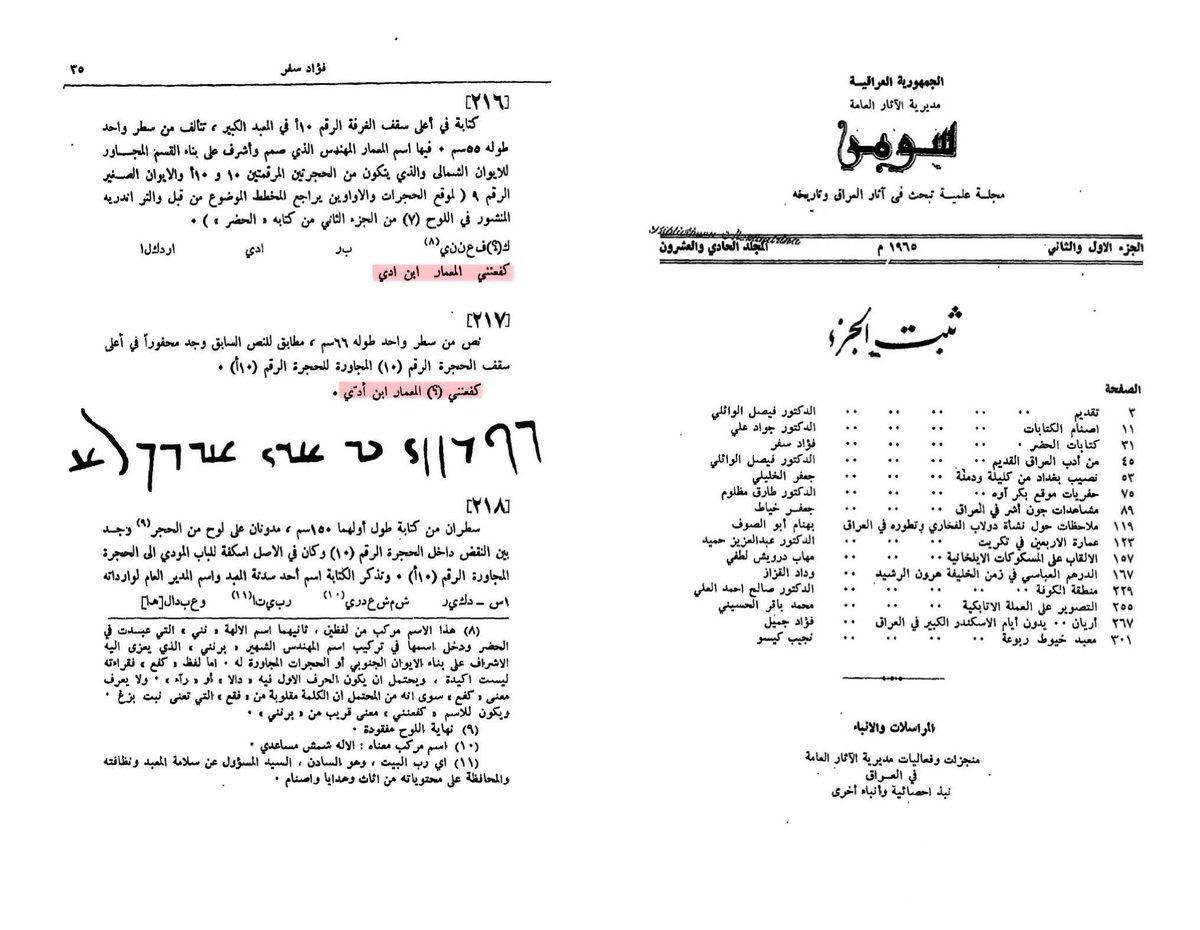 الجمهورية العراقية
مديرية الآثار العامة
سومر
مجلة علمية تبحث فى آثار العراق وتاريخه
الجزء الاول والثاني ١٩٦٥ م المجلد الحادي والعشرون
ثبت الجزء
الصفحة
٣ تقديم ٠٠ ٠٠ ٠٠ ٠٠ ٠٠ الدكتور فيصل الوائلي
١١ اصنام الكتابات ٠٠ ٠٠ ٠٠ ٠٠ الدكتور جواد علي
٣١ كتابات الحضر ٠ ٠٠ ٠٠ ٠٠ ٠٠ فؤاد سفر
٤٥ من أدب العراق القديم ٠٠ ٠٠ ٠٠ ٠٠ الدكتور فيصل الوائلي
٥٣ نصيب بغداد من كليلة ودمنة ٠٠ ٠٠ ٠٠ جعفر الخليلي
٧٥ حفريات موقع بكر آوه ٠٠ ٠٠ ٠٠ ٠٠ الدكتور طارق مظلوم
٨٩ مشاهدات جون أشر في العراق ٠٠ ٠٠ ٠٠ جعفر خياط
١١٩ ملاحظات حول نشأة دولاب الفخاري وتطوره في العراق بهنام أبو الصوف
١٢٣ عمارة الاربعين في تكريت ٠٠ ٠٠ ٠٠ الدكتور عبدالعزيز حميد
١٥٧ الالقاب على المسكوكات الايلخانية ٠٠ ٠٠ مهاب درويش لطفي
١٦٧ الدرهم العباسي في زمن الخليفة هرون الرشيد ٠٠ وداد القزاز
٢٢٩ منطقة الكوفة ٠٠ ٠٠ ٠٠ ٠٠ الدكتور صالح احمد العلي
٢٥٥ التصوير على العملة الاتابكية ٠٠ ٠٠ ٠٠ محمد باقر الحسيني
٢٦٧ أريان ٠٠ يدون أيام الاسكندر الكبير في العراق ٠٠ فؤاد جميل
٣٠١ معبد خيوط ربوعة ٠٠ ٠٠ ٠٠ ٠٠ نجيب كيسو
المراسلات والانباء
منجزات وفعاليات مديرية الآثار العامة
في العراق
نبذ احصائية وأنباء أخرى
فؤاد سفر ٣٥
[٢١٦]
كتابة في أعلى سقف الغرفة الرقم ١٠أ في المعبد الكبير ، تتألف من سطر واحد
طوله ٥٥سم ٠ فيها اسم المعمار المهندس الذي صمم وأشرف على بناء القسم المجاور
للايوان الشمالى والذي يتكون من الحجرتين المرقمتين ١٠ و ١٠أ والايوان الصغير
الرقم ٩ ( لموقع الحجرات والاواوين يراجع المخطط الموضوع من قبل والتر اندريه
المنشور في اللوح (٧) من الجزء الثاني من كتابه « الحضر » ) ٠
ك(؟)فعنني(٨) بر ادي اردكلا
كفعنني المعمار ابن ادي
[٢١٧]
نص من سطر واحد طوله ٦٦سم ، مطابق للنص السابق وجد محفوراً في أعلى
سقف الحجرة الرقم (١٠) المجاورة للحجرة الرقم (١٠أ) ٠
كفعنني (؟) المعمار ابن أدّي ٠
[٢١٨]
سطران من كتابة طول أولهما ١٥٠سم ، مدونان على لوح من الحجر(٩) وجد
بين النقض داخل الحجرة الرقم (١٠) وكان في الاصل اسكفة للباب المودي الى الحجرة
المجاورة الرقم (١٠أ) ٠ وتذكر الكتابة اسم أحد سدنة المبد واسم المدير العام لوارداته
١س ــ دكير شمشعدري(١٠) ربيتا(١١) وعبدال[ها]
(٨) هذا الاسم مركب من لفظين ، ثانيهما اسم الالهة « نني » التي عبدت في
الحضر ودخل اسمها في تركيب اسم المهندس الشهير « برنني » الذي يعزى اليه
الاشراف على بناء الايوان الجنوبي أو الحجرات المجاورة له ٠ اما لفظ « كفع » فقراءته
ليست اكيدة ، ويحتمل ان يكون الحرف الاول فيه « دالا » أو « رآء » ٠ ولا يعرف
معنى « كفع » سوى انه من المحتمل ان الكلمة مقلوبة من « فقع » التي تعنى نبت بزغ ٠
ويكون للاسم « كفعنني » معنى قريب من « برنني » ٠
(٩) نهاية اللوح مفقودة ٠
(١٠) اسم مركب معناه : الاله شمش مساعدي ٠
(١١) اي رب البيت ، وهو السادن ، السيد المسؤول عن سلامة المعبد ونظافته
والمحافظة على محتوياته من اثاث وهدايا واصنام ٠